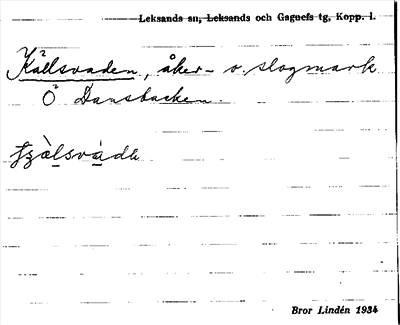 Leksands sn, Leksands och Gagnefs tg, Kopp. l.
Källsvaden, åker- o. slogmark
Ö Dansbacken.
Bror Lindén 1934